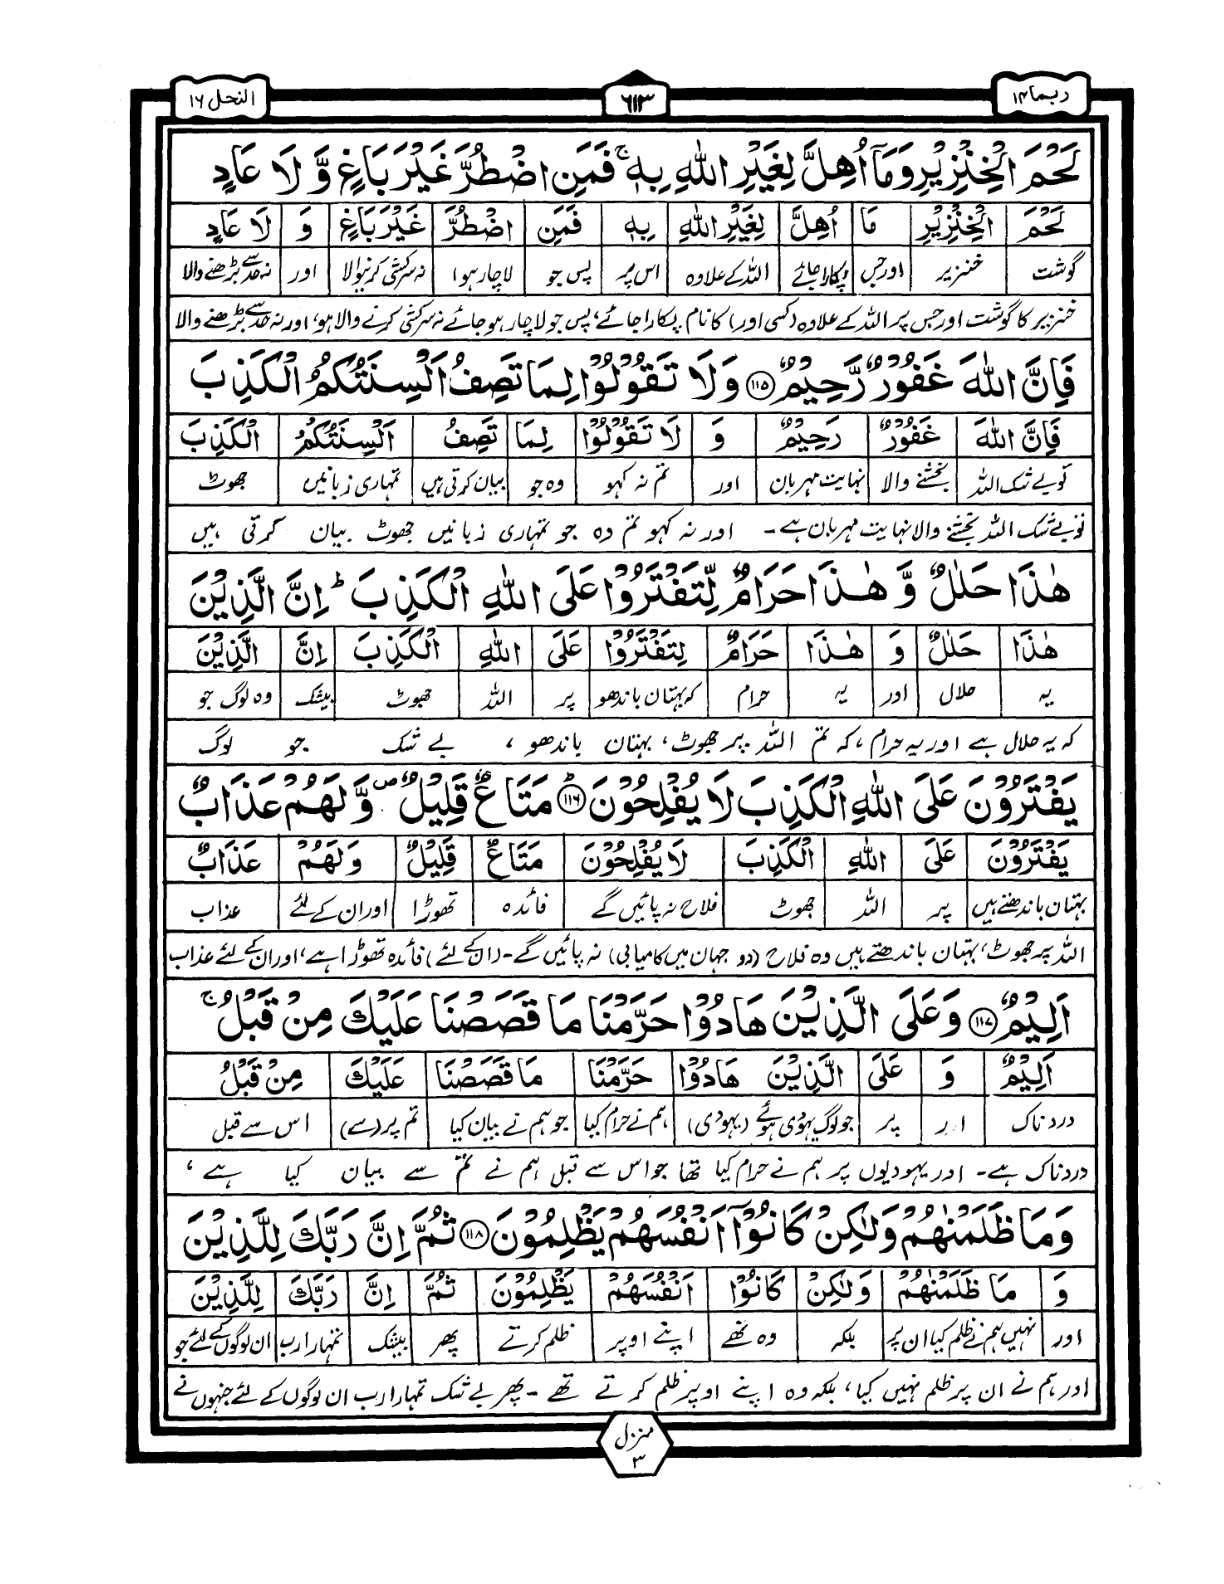 ربما ١٤
٦١٣
النحل ١٦
لَحْمَ الْخِنْزِيْرِ وَمَاۤ اُهِلَّ لِغَيْرِ اللّٰهِ بِهٖ ۚ فَمَنِ اضْطُرَّ غَيْرَ بَاغٍ وَّ لَا عَادٍ
لَحْمَ الْخِنْزِيْرِ مَا اُهِلَّ لِغَيْرِ اللّٰهِ بِهٖ فَمَنِ اضْطُرَّ غَيْرَ بَاغٍ وَ لَا عَادٍ
گوشت خنزیر اور جس پکارا جائے اللہ کے علاوہ اس پر پس جو لاچار ہوا نہ سرکشی کرنیوالا اور نہ حد سے بڑھنے والا
خنزیر کا گوشت اور جس پر اللہ کے علاوہ (کسی اور) کا نام پکارا جائے، پس جو لاچار ہو جائے نہ سرکشی کرنے والا ہو، اور نہ حد سے بڑھنے والا
فَاِنَّ اللّٰهَ غَفُوْرٌ رَّحِيْمٌ ﴿١١٥﴾ وَلَا تَقُوْلُوْا لِمَا تَصِفُ اَلْسِنَتُكُمُ الْكَذِبَ
فَاِنَّ اللّٰهَ غَفُوْرٌ رَحِيْمٌ وَ لَا تَقُوْلُوْا لِمَا تَصِفُ اَلْسِنَتُكُمُ الْكَذِبَ
تو بے شک اللہ بخشنے والا نہایت مہربان اور تم نہ کہو وہ جو بیان کرتی ہیں تمہاری زبانیں جھوٹ
تو بے شک اللہ بخشنے والا نہایت مہربان ہے۔ اور نہ کہو تم وہ جو تمہاری زبانیں جھوٹ بیان کرتی ہیں
هٰذَا حَلٰلٌ وَّ هٰذَا حَرَامٌ لِّتَفْتَرُوْا عَلَى اللّٰهِ الْكَذِبَ ؕ اِنَّ الَّذِيْنَ
هٰذَا حَلٰلٌ وَ هٰذَا حَرَامٌ لِتَفْتَرُوْا عَلَى اللّٰهِ الْكَذِبَ اِنَّ الَّذِيْنَ
یہ حلال اور یہ حرام کہ بہتان باندھو پر اللہ جھوٹ بیشک وہ لوگ جو
کہ یہ حلال ہے اور یہ حرام، کہ تم اللہ پر جھوٹ، بہتان باندھو، بے شک جو لوگ
يَفْتَرُوْنَ عَلَى اللّٰهِ الْكَذِبَ لَا يُفْلِحُوْنَ ﴿١١٦﴾ؕ مَتَاعٌ قَلِيْلٌ ۪ وَّلَهُمْ عَذَابٌ
يَفْتَرُوْنَ عَلَى اللّٰهِ الْكَذِبَ لَا يُفْلِحُوْنَ مَتَاعٌ قَلِيْلٌ وَلَهُمْ عَذَابٌ
بہتان باندھتے ہیں پر اللہ جھوٹ فلاح نہ پائیں گے فائدہ تھوڑا اور ان کے لئے عذاب
اللہ پر جھوٹ، بہتان باندھتے ہیں وہ فلاح (دو جہان میں کامیابی) نہ پائیں گے۔ (ان کے لئے) فائدہ تھوڑا ہے، اور ان کے لئے عذاب
اَلِيْمٌ ﴿١١٧﴾ وَعَلَى الَّذِيْنَ هَادُوْا حَرَّمْنَا مَا قَصَصْنَا عَلَيْكَ مِنْ قَبْلُ ۚ
اَلِيْمٌ وَ عَلَى الَّذِيْنَ هَادُوْا حَرَّمْنَا مَا قَصَصْنَا عَلَيْكَ مِنْ قَبْلُ
دردناک اور پر جو لوگ یہودی ہوئے (یہودی) ہم نے حرام کیا جو ہم نے بیان کیا تم پر (سے) اس سے قبل
دردناک ہے۔ اور یہودیوں پر ہم نے حرام کیا تھا جو اس سے قبل ہم نے تم سے بیان کیا ہے،
وَمَا ظَلَمْنٰهُمْ وَلٰكِنْ كَانُوْۤا اَنْفُسَهُمْ يَظْلِمُوْنَ ﴿١١٨﴾ ثُمَّ اِنَّ رَبَّكَ لِلَّذِيْنَ
وَ مَا ظَلَمْنٰهُمْ وَلٰكِنْ كَانُوْا اَنْفُسَهُمْ يَظْلِمُوْنَ ثُمَّ اِنَّ رَبَّكَ لِلَّذِيْنَ
اور نہیں ہم نے ظلم کیا ان پر بلکہ وہ تھے اپنے اوپر ظلم کرتے پھر بیشک تمہارا رب ان لوگوں کے لئے جو
اور ہم نے ان پر ظلم نہیں کیا، بلکہ وہ اپنے اوپر ظلم کرتے تھے ۔ پھر بے شک تمہارا رب ان لوگوں کے لئے جنہوں نے
منزل ٣